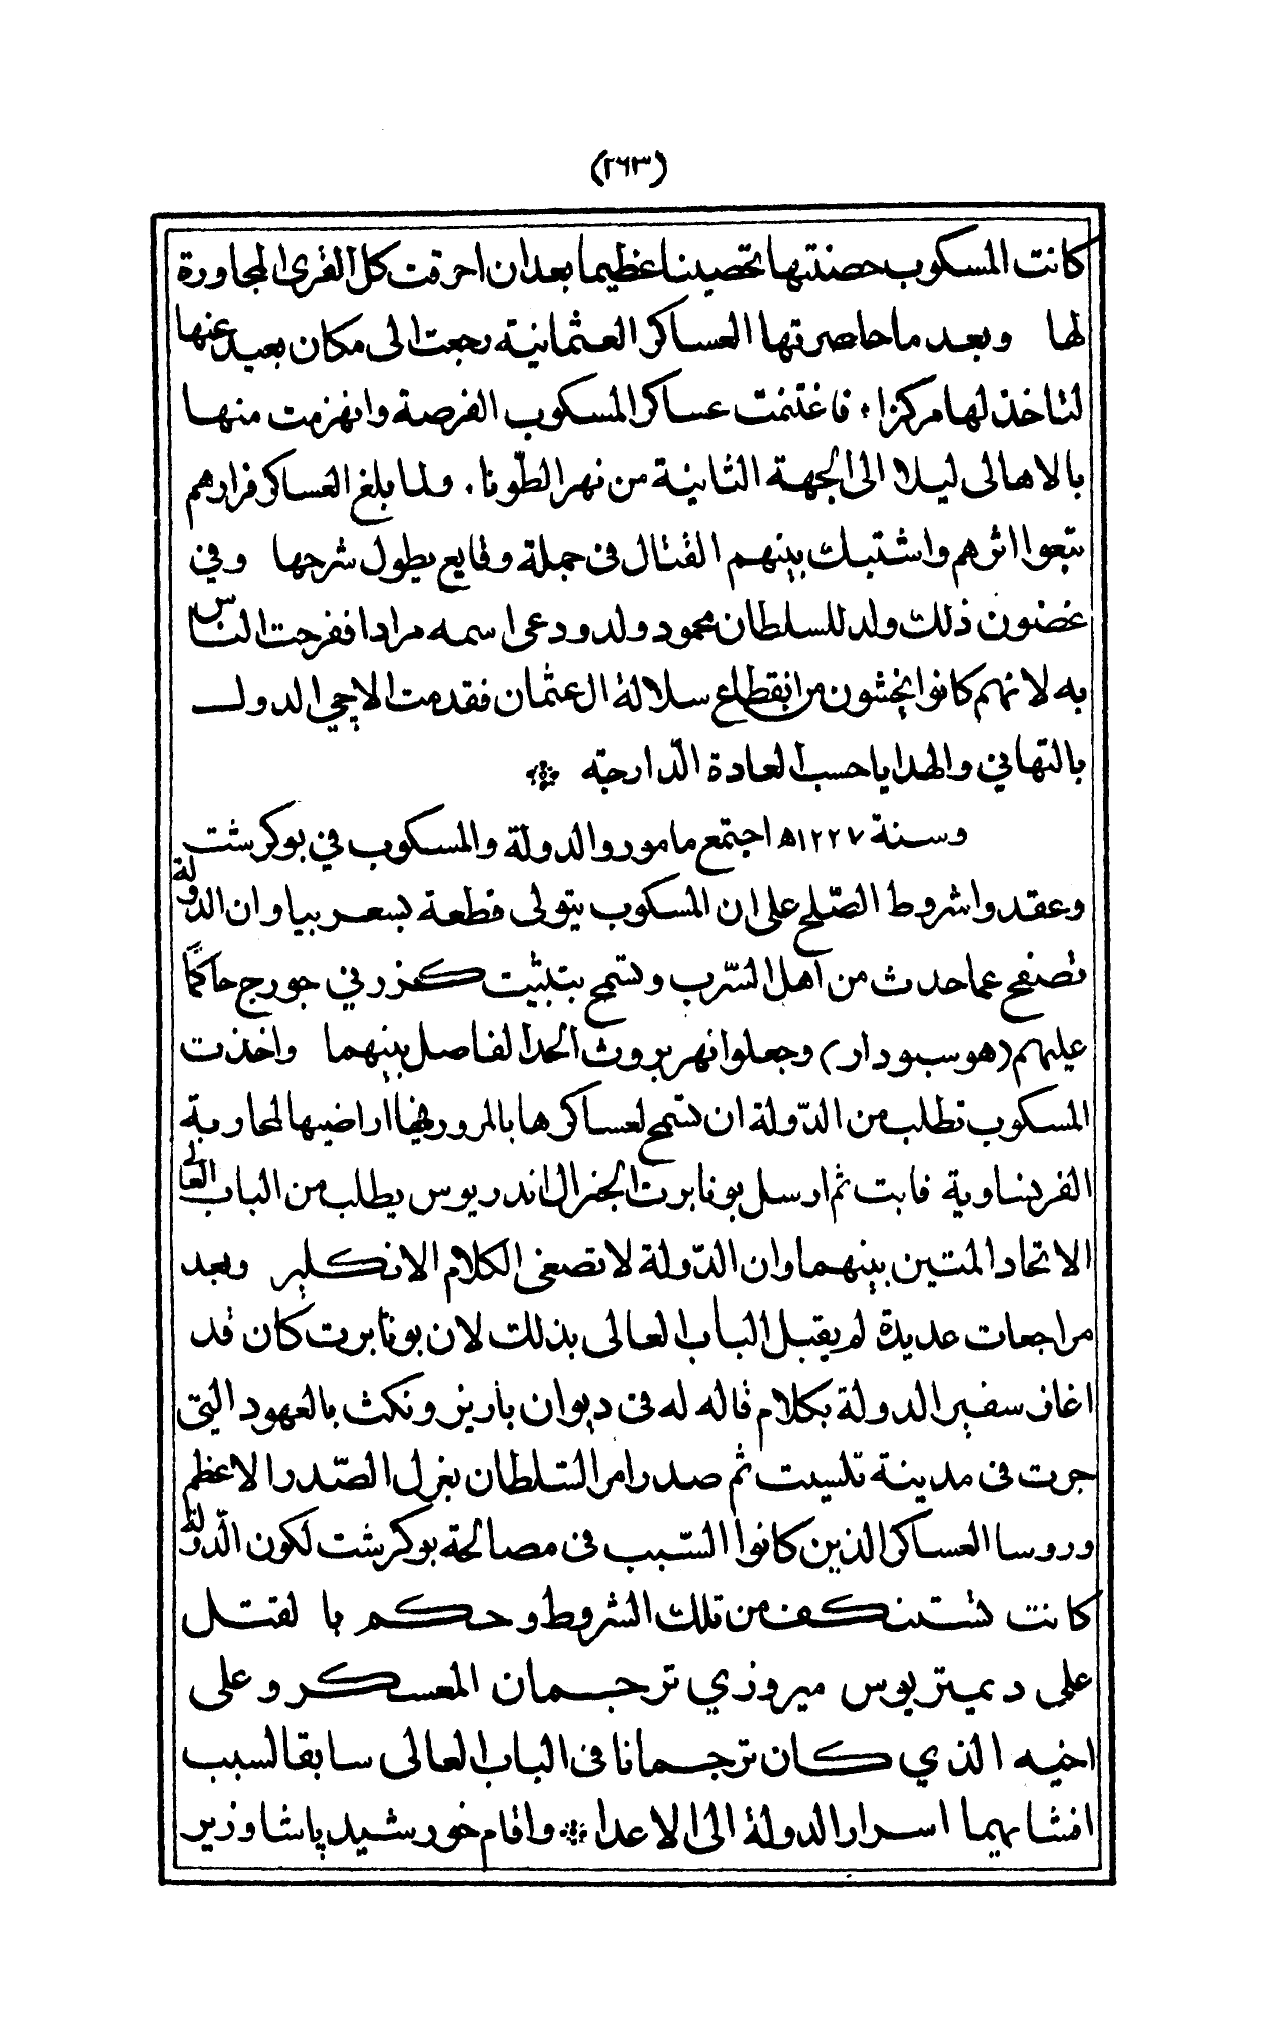 (٢٦٣)
كانت المسكوب حصنتها تحصينا عظيما بعد ان احرقت كل القرى المجاورة
لها وبعد ما حاصرتها العساكر العثمانية رجعت الى مكان بعيد عنها
لتاخذ لها مركزا . فاغتنمت عساكر المسكوب الفرصة وانهزمت منها
بالاهالى ليلا الى الجهة الثانية من نهر الطّونا . ولما بلغ العساكر فرارهم
تبعوا اثرهم واشتبك بينهم القتال فى جملة وقايع يطول شرحها وفي
غضون ذلك ولد للسلطان محمود ولد ودعى اسمه مرادا ففرحت الناس
به لانهم كانوا يخشون من انقطاع سلالة ال عثمان فقدمت الايلجي الدول
بالتهاني والهدايا حسب العادة الدّارجة ❊
وسنة ١٢٢٧ه اجتمع مامورو الدولة والمسكوب في بوكرشت
وعقدوا شروط الصّلح على ان المسكوب يتولى قطعة بسعربيا وان الدولة
تصفح عما حدث من اهل السّرب وتسمح بتثبيت كزرني جورج حاكمًا
عليهم (هوسبودار) وجعلوا نهر بروث الحد الفاصل بينهما واخذت
المسكوب تطلب من الدّولة ان تسمح لعساكرها بالمرور في اراضيها لمحاربة
الفرنساوية فابت ثم ارسل بونابرت الجنرال اندريوس يطلب من الباب العالى
الاتحاد المتين بينهما وان الدّولة لا تصغى الكلام الانكليز وبعد
مراجعات عديدة لم يقبل الباب العالى بذلك لان بونابرت كان قد
اغاظ سفير الدولة بكلام قاله له فى ديوان باريز ونكث بالعهود التى
جرت فى مدينة تلسيت ثم صدر امر السّلطان بعزل الصّدر الاعظم
وروسا العساكر الذين كانوا السّبب فى مصالحة بوكرشت لكون الدّولة
كانت تستنكف من تلك الشروط وحكم بالقتل
على ديمتريوس ميروزي ترجمان المعسكر وعلى
اخيه الذي كان ترجمانا فى الباب العالى سابقا لسبب
افشايهما اسرار الدولة الى الاعدا ❊ واقام خورشيد پاشا وزير